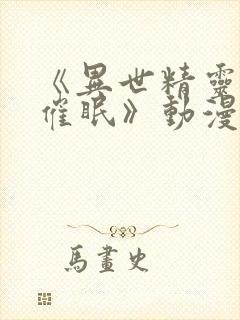 《異世精靈
催眠》動漫
馬畫史